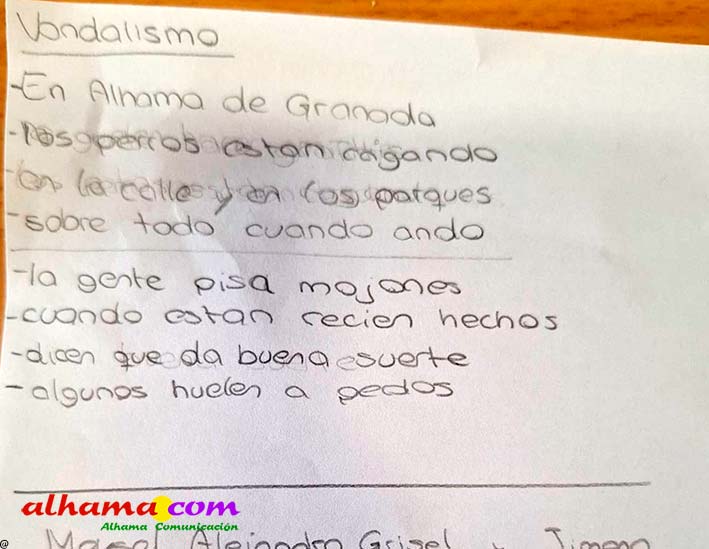 Vandalismo
-En Alhama de Granada
-los perros estan caigando
-en la calle y en los parques
-sobre todo cuando ando
-la gente pisa mojones
-cuando estan recien hechos
-dicen que da buena suerte
-algunos huelen a pedos
alhama.com
Alhama Comunicación
@ Alejandro Grisel y Jimena